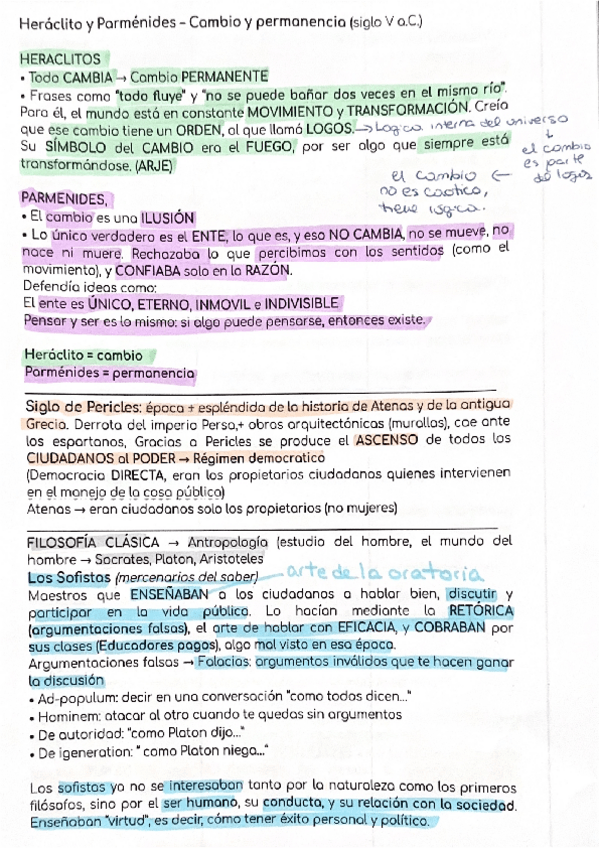 Heráclito y Parménides – Cambio y permanencia (siglo V a.C.)
HERACLITOS
• Todo CAMBIA → Cambio PERMANENTE
• Frases como "todo fluye" y "no se puede bañar dos veces en el mismo río".
Para él, el mundo está en constante MOVIMIENTO y TRANSFORMACIÓN. Creía
que ese cambio tiene un ORDEN, al que llamó LOGOS. → Logica interna del universo
Su SÍMBOLO del CAMBIO era el FUEGO, por ser algo que siempre está
transformándose. (ARJE)
↓
el cambio
es parte
de logos
←
el cambio
no es caotico,
tiene logica.
PARMENIDES,
• El cambio es una ILUSIÓN
• Lo único verdadero es el ENTE, lo que es, y eso NO CAMBIA, no se mueve, no
nace ni muere. Rechazaba lo que percibimos con los sentidos (como el
movimiento), y CONFIABA solo en la RAZÓN.
Defendía ideas como:
El ente es ÚNICO, ETERNO, INMOVIL e INDIVISIBLE
Pensar y ser es lo mismo: si algo puede pensarse, entonces existe.
Heráclito = cambio
Parménides = permanencia
Siglo de Pericles: época + espléndida de la historia de Atenas y de la antigua
Grecia. Derrota del imperio Persa,+ obras arquitectónicas (murallas), cae ante
los espartanos, Gracias a Pericles se produce el ASCENSO de todos los
CIUDADANOS al PODER → Régimen democratico
(Democracia DIRECTA, eran los propietarios ciudadanos quienes intervienen
en el manejo de la cosa pública)
Atenas → eran ciudadanos solo los propietarios (no mujeres)
FILOSOFÍA CLÁSICA → Antropología (estudio del hombre, el mundo del
hombre → Socrates, Platon, Aristoteles
Los Sofistas (mercenarios del saber) arte de la oratoria
Maestros que ENSEÑABAN a los ciudadanos a hablar bien, discutir y
participar en la vida pública. Lo hacían mediante la RETÓRICA
(argumentaciones falsas), el arte de hablar con EFICACIA, y COBRABAN por
sus clases (Educadores pagos), algo mal visto en esa época.
Argumentaciones falsas → Falacias: argumentos inválidos que te hacen ganar
la discusión
• Ad-populum: decir en una conversación "como todos dicen..."
• Hominem: atacar al otro cuando te quedas sin argumentos
• De autoridad: "como Platon dijo..."
• De igeneration: " como Platon niega..."
Los sofistas ya no se interesaban tanto por la naturaleza como los primeros
filósofos, sino por el ser humano, su conducta, y su relación con la sociedad.
Enseñaban "virtud", es decir, cómo tener éxito personal y político.